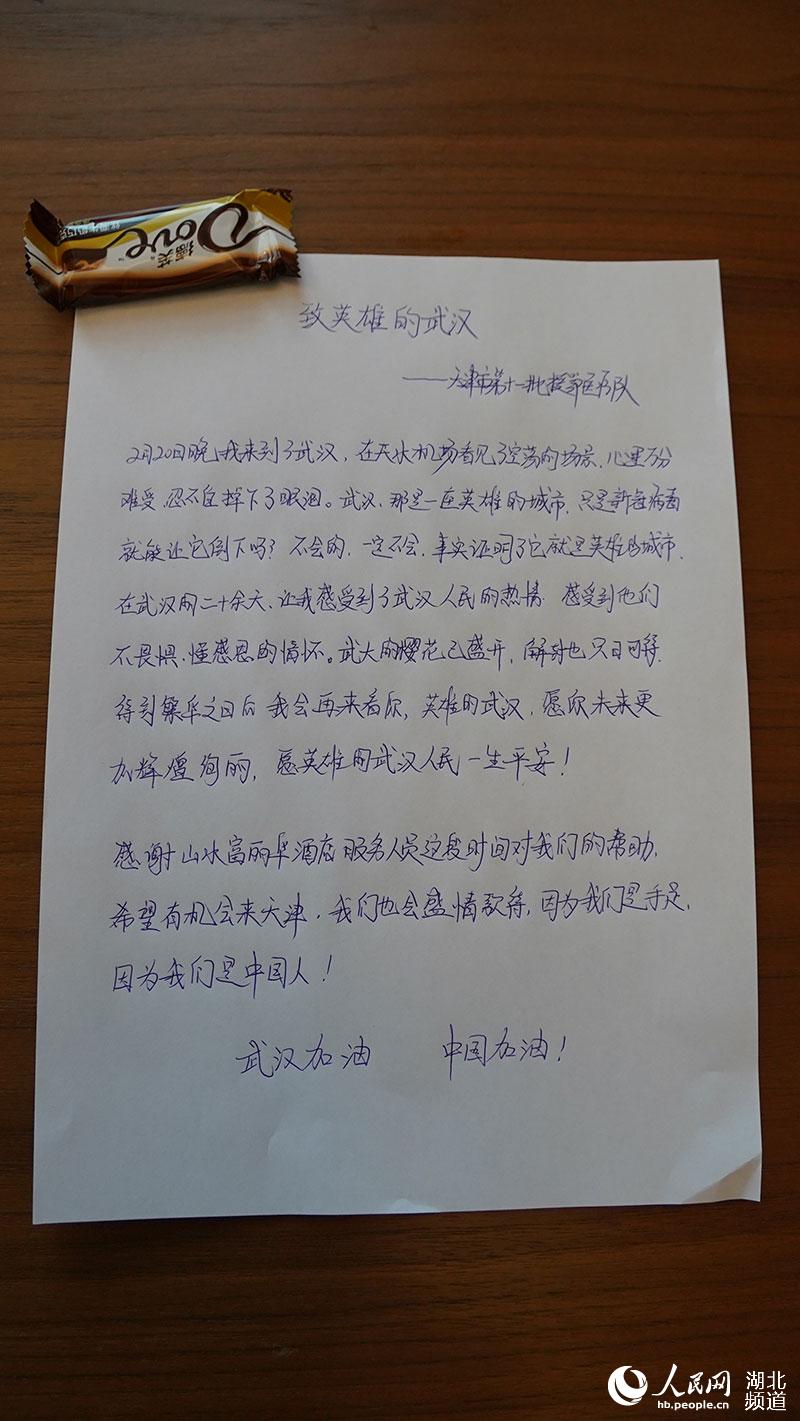 Dove
德芙
致英雄的武汉
——天津市第十一批援鄂医疗队
2月20日晚,我来到了武汉,在天水机场看见了空荡的场景,心里万分
难受,忍不住掉下了眼泪。武汉,那是一座英雄的城市,只是新冠病毒
就能让它倒下吗?不会的,一定不会,事实证明了它就是英雄的城市.
在武汉的二十余天,让我感受到了武汉人民的热情 感受到他们
不畏惧、懂感恩的情怀。武大的樱花已盛开,解封也只日可待.
待到繁华之日后 我会再来看你,英雄的武汉,愿你未来更
加辉煌绚丽,愿英雄的武汉人民一生平安!
感谢山水富丽华酒店服务人员这段时间对我们的帮助,
希望有机会来天津,我们也会盛情款待,因为我们是手足,
因为我们是中国人!
武汉加油 中国加油!
人民网 湖北频道
hb.people.cn